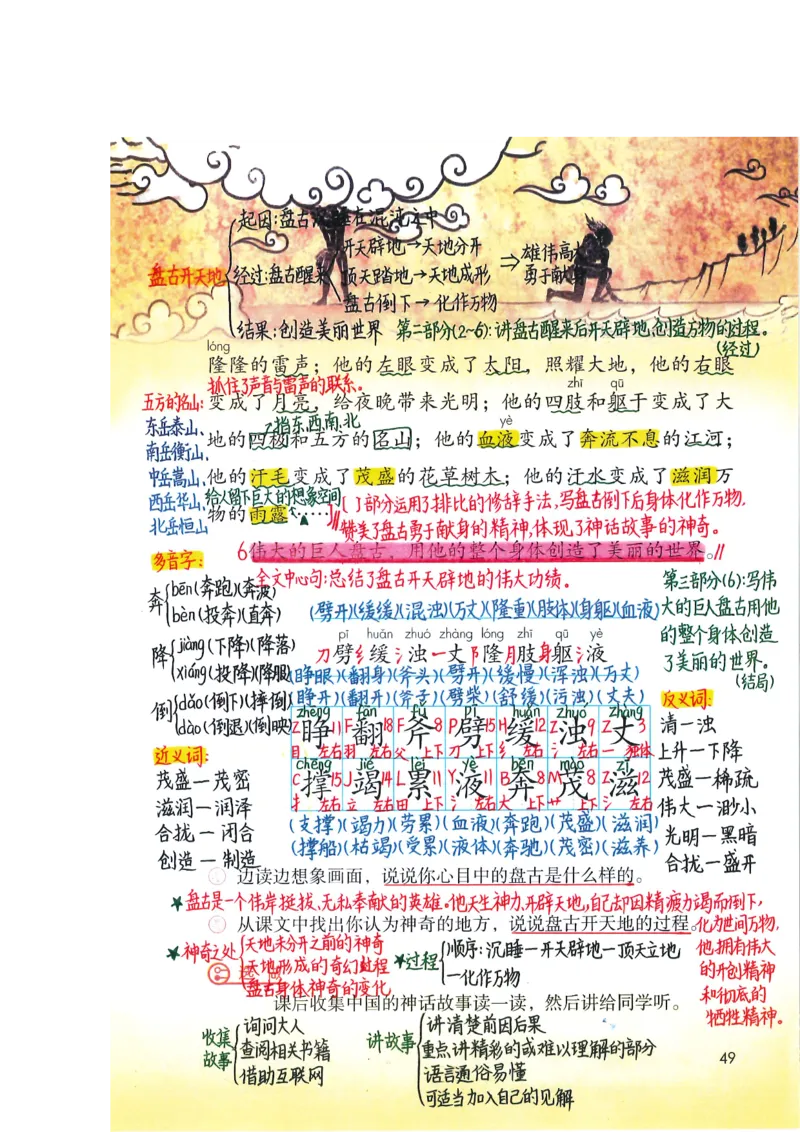 起因:盘古沉睡在混沌之中
盘古开天地
经过:盘古醒来
开天辟地→天地分开
顶天踏地→天地成形
盘古倒下→化作万物
⇒雄伟高大
勇于献身
结果:创造美丽世界
第二部分(2~6):讲盘古醒来后开天辟地,创造万物的过程。
(经过)
lóng
隆隆的雷声；他的左眼变成了太阳，照耀大地，他的右眼
抓住了声音与雷声的联系。
zhī qū
变成了月亮，给夜晚带来光明；他的四肢和躯干变成了大
指东、西、南、北
yè
地的四极和五方的名山；他的血液变成了奔流不息的江河；
他的汗毛变成了茂盛的花草树木；他的汗水变成了滋润万
给人留下巨大的想象空间
物的雨露……
五方的名山:
东岳泰山、
南岳衡山、
中岳嵩山、
西岳华山、
北岳恒山
(1部分运用了排比的修辞手法,写盘古倒下后身体化作万物,
赞美了盘古勇于献身的精神,体现了神话故事的神奇。
6伟大的巨人盘古，用他的整个身体创造了美丽的世界。
全文中心句:总结了盘古开天辟地的伟大功绩。
第三部分(6):写伟
大的巨人盘古用他
的整个身体创造
了美丽的世界。
(结局)
多音字:
奔
bēn(奔跑)(奔波)
bèn(投奔)(直奔)
降
jiàng(下降)(降落)
xiáng(投降)(降服)
倒
dǎo(倒下)(摔倒)
dào(倒退)(倒映)
近义词:
茂盛—茂密
滋润—润泽
合拢—闭合
创造—制造
(劈开)(缓缓)(混浊)(万丈)(隆重)(肢体)(身躯)(血液)
pī huǎn zhuó zhàng lóng zhī qū yè
刀劈纟缓氵浊一丈阝隆月肢身躯氵液
(睁眼)(翻身)(斧头)(劈开)(缓慢)(浑浊)(万丈)
(睁开)(翻开)(斧子)(劈柴)(舒缓)(污浊)(丈夫)
zhēng fān fǔ pī huǎn zhuó zhàng
Z睁11 F翻18 F斧8 P劈15 H缓12 Z浊9 Z丈3
目 左右 羽 左右 父 上下 刀 上下 纟 左右 氵 左右 一 独体
chēng jié lèi yè bēn mào zī
C撑15 J竭14 L累11 Y液11 B奔8 M茂8 Z滋12
扌 左右 立 左右 田 上下 氵 左右 大 上下 艹 上下 氵 左右
(支撑)(竭力)(劳累)(血液)(奔跑)(茂盛)(滋润)
(撑船)(枯竭)(受累)(液体)(奔驰)(茂密)(滋养)
反义词:
清—浊
上升—下降
茂盛—稀疏
伟大—渺小
光明—黑暗
合拢—盛开
边读边想象画面，说说你心目中的盘古是什么样的。
★盘古是一个伟岸挺拔、无私奉献的英雄。他天生神力,开辟天地,自己却因精疲力竭而倒下,
化为世间万物,
他拥有伟大
的开创精神
和彻底的
牺牲精神。
从课文中找出你认为神奇的地方，说说盘古开天地的过程。
★神奇之处
天地未分开之前的神奇
天地形成的奇幻过程
盘古身体神奇的变化
★过程
顺序:沉睡—开天辟地—顶天立地
—化作万物
课后收集中国的神话故事读一读，然后讲给同学听。
收集
故事
询问大人
查阅相关书籍
借助互联网
讲故事
讲清楚前因后果
重点讲精彩的或难以理解的部分
语言通俗易懂
可适当加入自己的见解
49